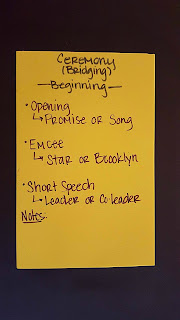 Ceremony
(Bridging)
—Beginning—
• Opening
↳ Promise or Song
• Emcee
↳ Star or Brooklyn
• Short Speech
↳ Leader or Co-leader
Notes: